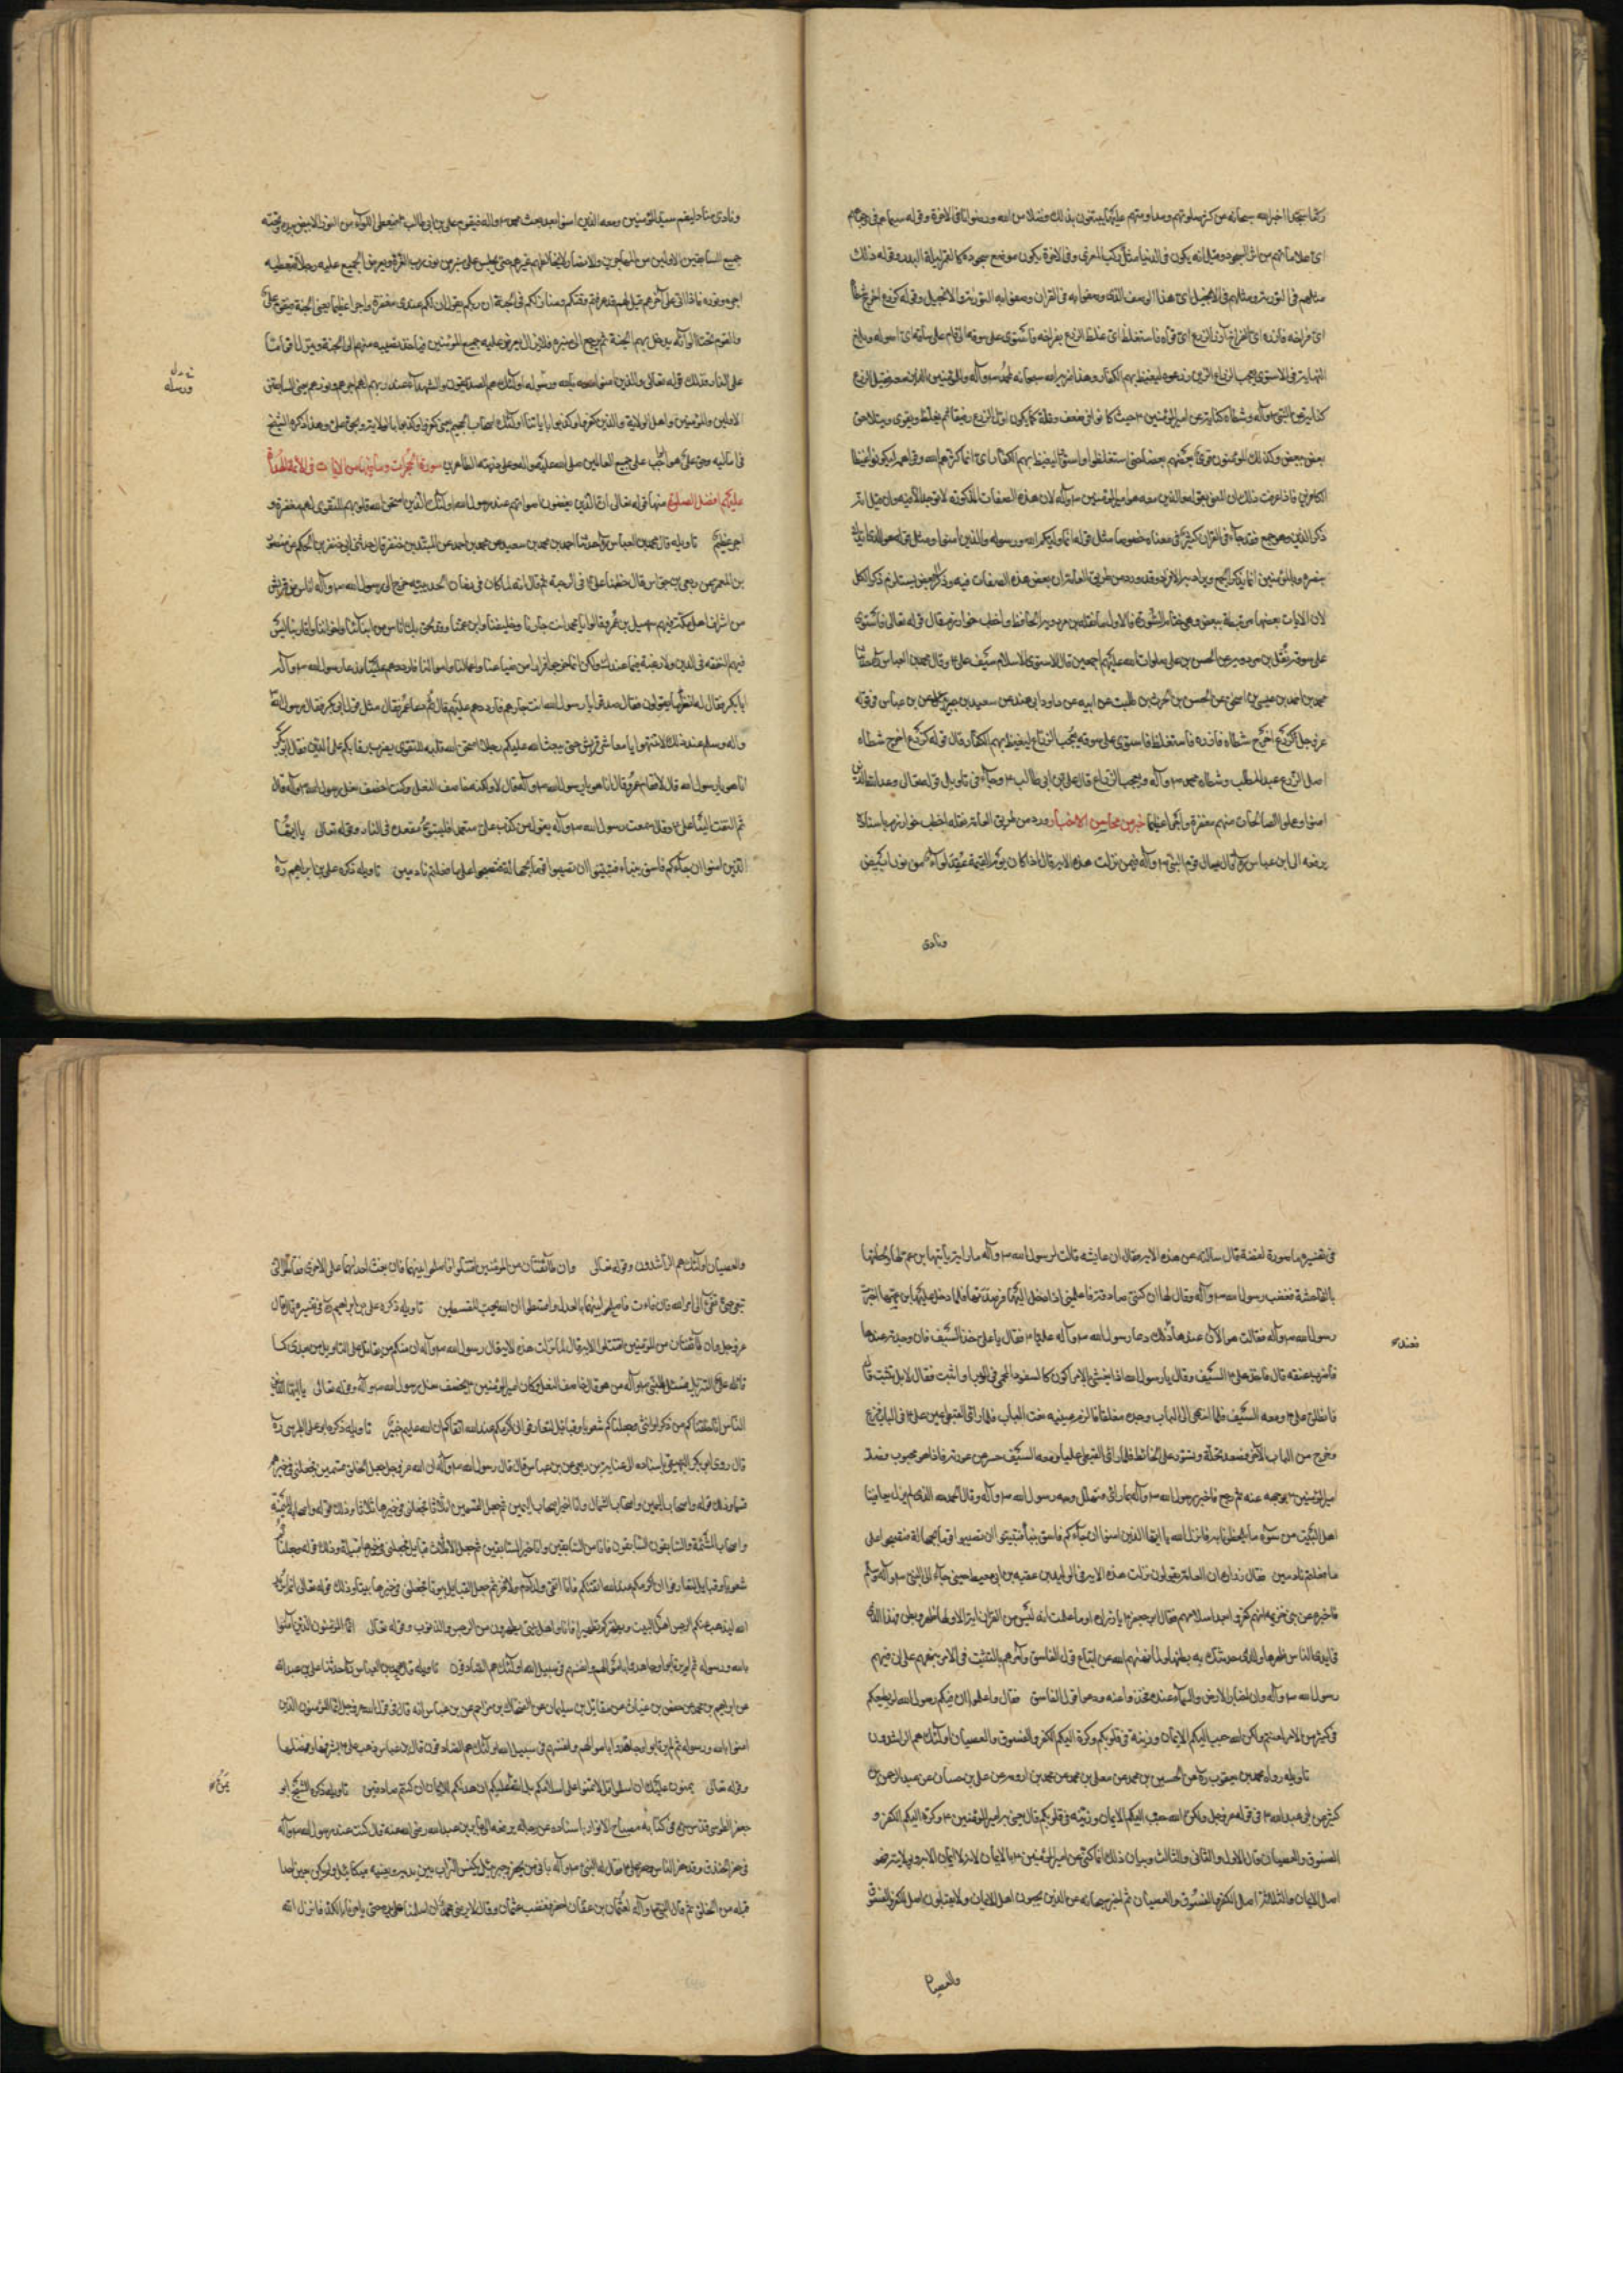 ركعا سجدا اخبر الله سبحانه عن كثرة صلوتهم ومداومتهم عليها يبتغون بذلك فضلا من الله ورضوانا في الاخرة وقوله سيماهم في وجوههم
اى علاماتهم من اثر السجود وقيل انه يكون في الدنيا مثل ركب المعزى وفي الاخرة يكون موضع سجودهم كالقمر ليلة البدر وقوله ذلك
مثلهم في التورية ومثلهم في الانجيل اى هذا الوصف الذى وصفوا به في القران وصفوا به في التورية والانجيل وقوله كزرع اخرج شطأه
اى فراخه فازره اى الفراخ آزر الزرع اى قواه فاستغلظ اى غلظ الزرع بفراخه فاستوى على سوقه اى قام على ساقه اى اصوله وبلغ
النهاية في الاستوى يعجب الزراع الذين زرعوه ليغيظ بهم الكفار وهذا ضربه الله سبحانه لمحمد ص وآله والمؤمنين
كناية عن النبى ص وآله وشطاه كناية عن امير المؤمنين ع حيث كانوا في ضعف وقلة كما يكون اول الزرع رقيقا ثم يغلظ ويقوى ويتلاحق
بعض ببعض وكذلك المؤمنون قوى بعضهم بعضا حتى استغلظوا واستووا ليغيظ بهم الكفار اى انما كثرهم الله وقواهم ليكونوا غيظا
للكافرين فاذا عرفت ذلك ان المعنى بقوله والذين معه هو امير المؤمنين ص وآله لان هذه الصفات المذكورة لا توجد الا فيه وان قيل انه
ذكر الذين وهو جمع فقد جاء في القران كثيرا في معناه خصوصا مثل قوله انما وليكم الله ورسوله والذين آمنوا ومثل قوله هو الذى ايدك
بنصره وبالمؤمنين
لان الايات بعضها مرتبطة ببعض
على سوقه
محمد بن احمد بن عيسى بن اسحق عن الحسن بن الحرث بن طلبت عن ابيه عن داود ابى هند عن سعيد بن جبير عن ابن عباس في قوله
عز وجل كزرع اخرج شطاه فازره فاستغلظ فاستوى على سوقه يعجب الزراع ليغيظ بهم الكفار قال قوله كزرع اخرج شطاه
اصل الزرع عبد المطلب وشطاه محمد ص وآله ويعجب الزراع قال على بن ابى طالب ع وجاء في تاويل قوله تعالى وعد الله الذين
امنوا وعملوا الصالحات منهم مغفرة واجرا عظيما خبر من محاسن الاخبار ورد من طريق العامة نقله اخطب خوارزم باسناده
يرفعه الى ابن عباس قال سال قوم النبى ص وآله فيمن نزلت هذه الاية قال اذا كان يوم القيمة عقد لواء من نور ابيض
ونادى
ونادى مناد ليقم سيد المؤمنين ومعه الذين امنوا بعد بعث محمد ص وآله فيقوم على بن ابى طالب ع فيعطى اللواء من النور الابيض بيده وتحته
جميع السابقين الاولين من المهاجرين والانصار لا يخالطهم غيرهم حتى يجلس على منبر من نور رب العزة ويعرض الجميع عليه رجلا رجلا فيعطيه
اجره ونوره فاذا اتى على آخرهم قيل لهم قد عرفتم موقفكم ومنازلكم في الجنة ان ربكم يقول ان لكم عندى مغفرة واجرا عظيما يعنى الجنة فيقوم على
والقوم تحت لوائه يدخل بهم الجنة ثم يرجع الى منبره فلا يزال يعرض عليه جميع المؤمنين فياخذ نصيبه منهم الى الجنة وينزل اقواما
على النار وذلك قوله تعالى والذين امنوا بالله ورسوله اولئك هم الصديقون والشهداء عند ربهم لهم اجرهم ونورهم يعنى السابقين
الاولين والمؤمنين واهل الولاية والذين كفروا وكذبوا باياتنا اولئك اصحاب الجحيم يعنى كفروا وكذبوا بالولاية وبحق على وهذا ذكره الشيخ
في اماليه وحق على هو الواجب على جميع العالمين صلى الله عليه وعلى ذريته الطاهرين سورة الحجرات وما فيها من الايات في الائمة الهداة
عليهم افضل الصلوة منها قوله تعالى ان الذين يغضون اصواتهم عند رسول الله اولئك الذين امتحن الله قلوبهم للتقوى لهم مغفرة و
اجر عظيم تاويله قال محمد بن العباس حدثنا احمد بن محمد بن سعيد عن محمد بن احمد عن المنذر بن جفير قال حدثنى ابى جفير بن الحكم عن منصور
بن المعتمر عن ربعى بن حراش قال خطبنا على ع في الرحبة ثم قال انه لما كان في زمان الحديبية خرج الى رسول الله ص وآله اناس من قريش
من اشراف اهل مكة فيهم سهيل بن عمرو قالوا يا محمد انت جارنا وحليفنا وابن عمنا وقد لحق بك اناس من ابنائنا واخواننا واقاربنا ليس
فيهم التفقه في الدين ولا رغبة فيما عندك ولكن انما خرجوا فرارا من ضياعنا واعمالنا واموالنا فارددهم علينا فدعا رسول الله ص وآله
ابا بكر فقال له انظر ما يقولون فقال صدقوا يا رسول الله انت جارهم فارددهم عليهم قال ثم دعا عمر فقال مثل قول ابى بكر فقال رسول الله
وآله وسلم عند ذلك لا تنتهوا يا معاشر قريش حتى يبعث الله عليكم رجلا امتحن الله قلبه للتقوى يضرب رقابكم على الدين فقال ابو بكر
انا هو يا رسول الله قال لا فقام عمر وقال انا هو يا رسول الله ص وآله قال لا ولكنه خاصف النعل وكنت اخصف نعل رسول الله ص وآله قال
ثم التفت الينا على ع وقال سمعت رسول الله ص وآله يقول من كذب على متعمدا فليتبوء مقعده في النار وقوله تعالى يا ايها
الذين امنوا ان جاءكم فاسق بنباء فتبينوا ان تصيبوا قوما بجهالة فتصبحوا على ما فعلتم نادمين تاويله ذكره على بن ابراهيم ره
ورسله
في تفسيره ما صورة لفظه قال سالته عن هذه الاية فقال ان عايشه قالت لرسول الله ص وآله ان مارية ياتيها ابن عم لها
بالفاحشة فغضب رسول الله ص وآله وقال لها ان كنتى صادقة فاعلمينى اذا دخل اليها فرصدتها فلما دخل عليها ابن عمها اخبرت
رسول الله ص وآله فقالت هو الآن عندها فعند ذلك دعا رسول الله ص وآله عليا ع فقال يا على خذ السيف فان وجدته عندها
فاضرب عنقه قال فاخذ على ع السيف وقال يا رسول الله اذا بعثتنى الامر اكون كالسفود المحمى في الوبر او اثبت فقال لا بل تثبت قال
فانطلق على ع ومعه السيف فلما انتهى الى الباب وجده مغلقا فالزم عينيه نقب الباب فلما راى القبطى عين على ع في الباب فزع
وخرج من الباب الآخر فصعد نخلة وتسور على الحائط فلما راى القبطى عليا ومعه السيف حسر عن عورته فاذا هو مجبوب فصد
امير المؤمنين ع بوجهه عنه ثم رجع فاخبر رسول الله ص وآله بما راى فتهلل وجه رسول الله ص وآله وقال الحمد لله الذى
اهل البيت من سوء ما يلحظنا به فانزل الله يا ايها الذين امنوا ان جاءكم فاسق بنبأ فتبينوا ان تصيبوا قوما بجهالة فتصبحوا على
ما فعلتم نادمين فقال زرارة ان العامة يقولون نزلت هذه الاية في الوليد بن عقبه بن ابى معيط حين جاء الى النبى ص وآله
فاخبره عن بنى خزيمة انهم كفروا بعد اسلامهم فقال ابو جعفر ع يا زرارة او ما علمت انه ليس من القران اية الا ولها ظهر وبطن فهذا الذى
في ايدى الناس ظهرها والذى حدثتك به بطنها
رسول الله ص وآله وان اخبار الارض والسماء عنده فخذوا عنه ودعوا قول الفاسق فقال واعلموا ان فيكم رسول الله لو يطيعكم
في كثير من الامر لعنتم ولكن الله حبب اليكم الايمان وزينه في قلوبكم وكره اليكم الكفر والفسوق والعصيان اولئك هم الراشدون
تاويله رواه محمد بن يعقوب ره عن الحسين بن محمد عن معلى بن محمد عن محمد بن اورمه عن على بن حسان عن عبد الرحمن بن
كثير عن ابى عبد الله ع في قوله عز وجل ولكن الله حبب اليكم الايمان وزينه في قلوبكم قال يعنى به امير المؤمنين ع وكره اليكم الكفر و
الفسوق والعصيان قال الاول والثانى والثالث وبيان ذلك انما كنى عن امير المؤمنين ع بالايمان
اصل الايمان والثلاثة اصل الكفر والفسوق والعصيان ثم اخبر سبحانه عن الذين يحبون اهل الايمان ولا يقبلون اصل الكفر والفسوق
والعصيان
فعند
والعصيان اولئك هم الراشدون وقوله تعالى وان طائفتان من المؤمنين اقتتلوا فاصلحوا بينهما فان بغت احداهما على الاخرى فقاتلوا التى
تبغى حتى تفىء الى امر الله فان فاءت فاصلحوا بينهما بالعدل واقسطوا ان الله يحب المقسطين تاويله ذكره على بن ابراهيم ره في تفسيره قال قال
عز وجل وان طائفتان من المؤمنين اقتتلوا الاية قال لما نزلت هذه الاية قال رسول الله ص وآله ان منكم من يقاتل على التاويل من بعدى كما
قاتلت على التنزيل فسئل النبى ص وآله من هو قال خاصف النعل وكان امير المؤمنين ع يخصف نعل رسول الله ص وآله وقوله تعالى يا ايها
الناس انا خلقناكم من ذكر وانثى وجعلناكم شعوبا وقبائل لتعارفوا ان اكرمكم عند الله اتقاكم ان الله عليم خبير تاويله ذكره ابو على الطبرسى ره
قال روى ابو بكر البيهقى باسناده الى عباية بن ربعى عن ابن عباس قال قال رسول الله ص وآله ان الله عز وجل جعل الخلق قسمين فجعلنى في خيرهم
قسما وذلك قوله واصحاب اليمين واصحاب الشمال وانا خير اصحاب اليمين ثم جعل القسمين اثلاثا فجعلنى في خيرها ثلاثا وذلك قوله واصحاب الميمنة
واصحاب المشئمة والسابقون السابقون فانا من السابقين وانا خير السابقين ثم جعل الاثلاث قبايل فجعلنى في خيرها قبيلة وذلك قوله وجعلناكم
شعوبا وقبايل لتعارفوا ان اكرمكم عند الله اتقيكم فانا اتقى ولد آدم ولا فخر ثم جعل القبايل بيوتا فجعلنى في خيرها بيتا وذلك قوله تعالى انما يريد
الله ليذهب عنكم الرجس اهل البيت ويطهركم تطهيرا فانا واهل بيتى مطهرون من الرجس والذنوب وقوله تعالى انما المؤمنون الذين آمنوا
بالله ورسوله ثم لم يرتابوا وجاهدوا باموالهم وانفسهم في سبيل الله اولئك هم الصادقون تاويله قال محمد بن العباس حدثنا على بن عبد الله
عن ابراهيم بن محمد عن حفص بن غياث عن مقاتل بن سليمان عن الضحاك بن مزاحم عن ابن عباس انه قال في قول الله عز وجل انما المؤمنون الذين
امنوا بالله ورسوله ثم لم يرتابوا وجاهدوا باموالهم وانفسهم في سبيل الله اولئك هم الصادقون قال ابن عباس ذهب على ع بشرفها وفضلها
وقوله تعالى يمنون عليك ان اسلموا قل لا تمنوا على اسلامكم بل الله يمن عليكم ان هداكم للايمان ان كنتم صادقين تاويله ذكره الشيخ ابو
جعفر الطوسى قدس سره في كتابه مصباح الانوار باسناده عن رجاله يرفعه الى جابر بن عبد الله رضى الله عنه قال كنت عند رسول الله ص وآله
في حفر الخندق وقد حفر الناس وحفر على ع فقال له النبى ص وآله بابى من يحفر وجبرئيل يكنس التراب بين يديه ويعينه ميكائيل ولم يكن يعين احدا
قبله من الخلق ثم قال النبى ص وآله لعثمان بن عفان احفر فغضب عثمان وقال لا يرضى محمد ان اسلمنا على يده حتى يامرنا بالكد فانزل الله